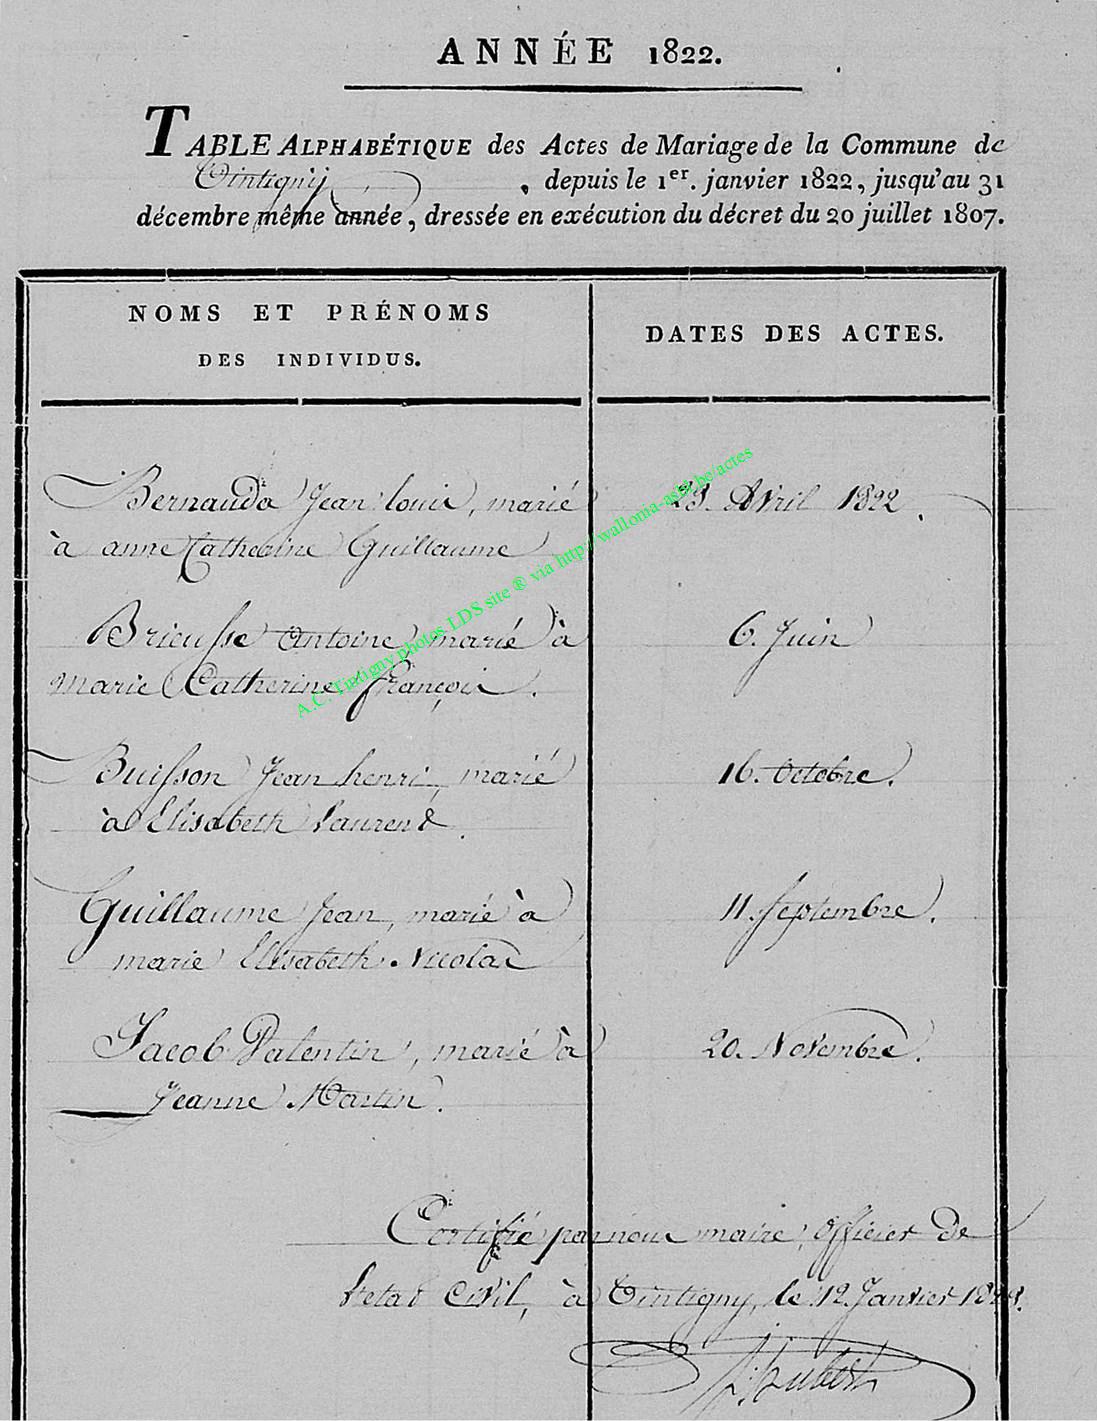 ANNÉE 1822.
TABLE ALPHABÉTIQUE des Actes de Mariage de la Commune de
Tintigny, depuis le 1er. janvier 1822, jusqu'au 31
décembre même année, dressée en exécution du décret du 20 juillet 1807.
NOMS ET PRÉNOMS
DES INDIVIDUS.
DATES DES ACTES.
Bernauda Jean louis, marié
à anne Catherine Guillaume
23. Avril 1822.
Brieusse Antoine marié à
marie Catherine françois.
6. Juin
Buisson Jean henri, marié
à Elisabeth Laurent.
16. Octobre.
Guillaume Jean, marié à
marie Elisabeth Nicolas
11. Septembre.
Jacob Valentin, marié à
Jeanne Martin.
20. Novembre.
Certifié par nous maire, officier de
l'etat Civil, à Tintigny, le 12. Janvier
A.C. Tintigny photos LDS site ® via http://wallonia-asbl.be/actes